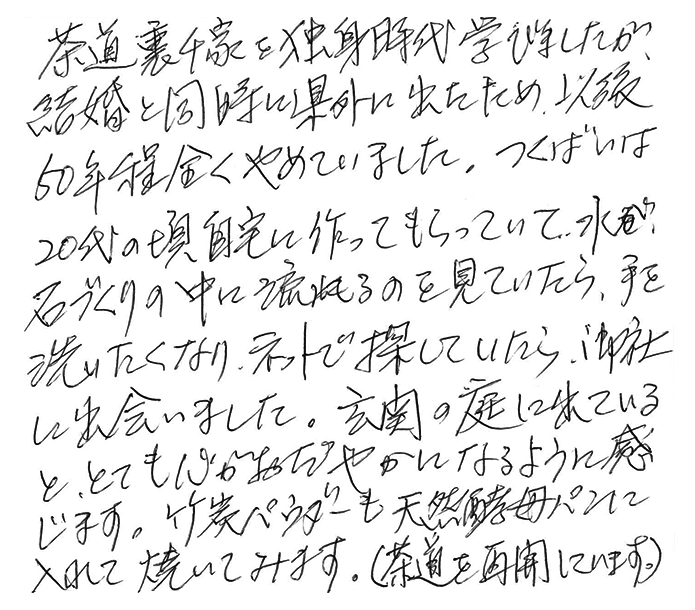 茶道裏千家を独身時代学びましたが、
結婚と同時に県外に出たため、以後
60年程全くやめていました。つくばいは
20代の頃自宅に作ってもらっていて、水が
石づくりの中に流れるのを見ていたら、手を
洗いたくなり、ネットで探していたら、御社
に出会いました。玄関の庭に出ている
と、とても心がおだやかになるように感
じます。竹炭パウダーも天然酵母パンに
入れて焼いてみます。(茶道を再開しています。)